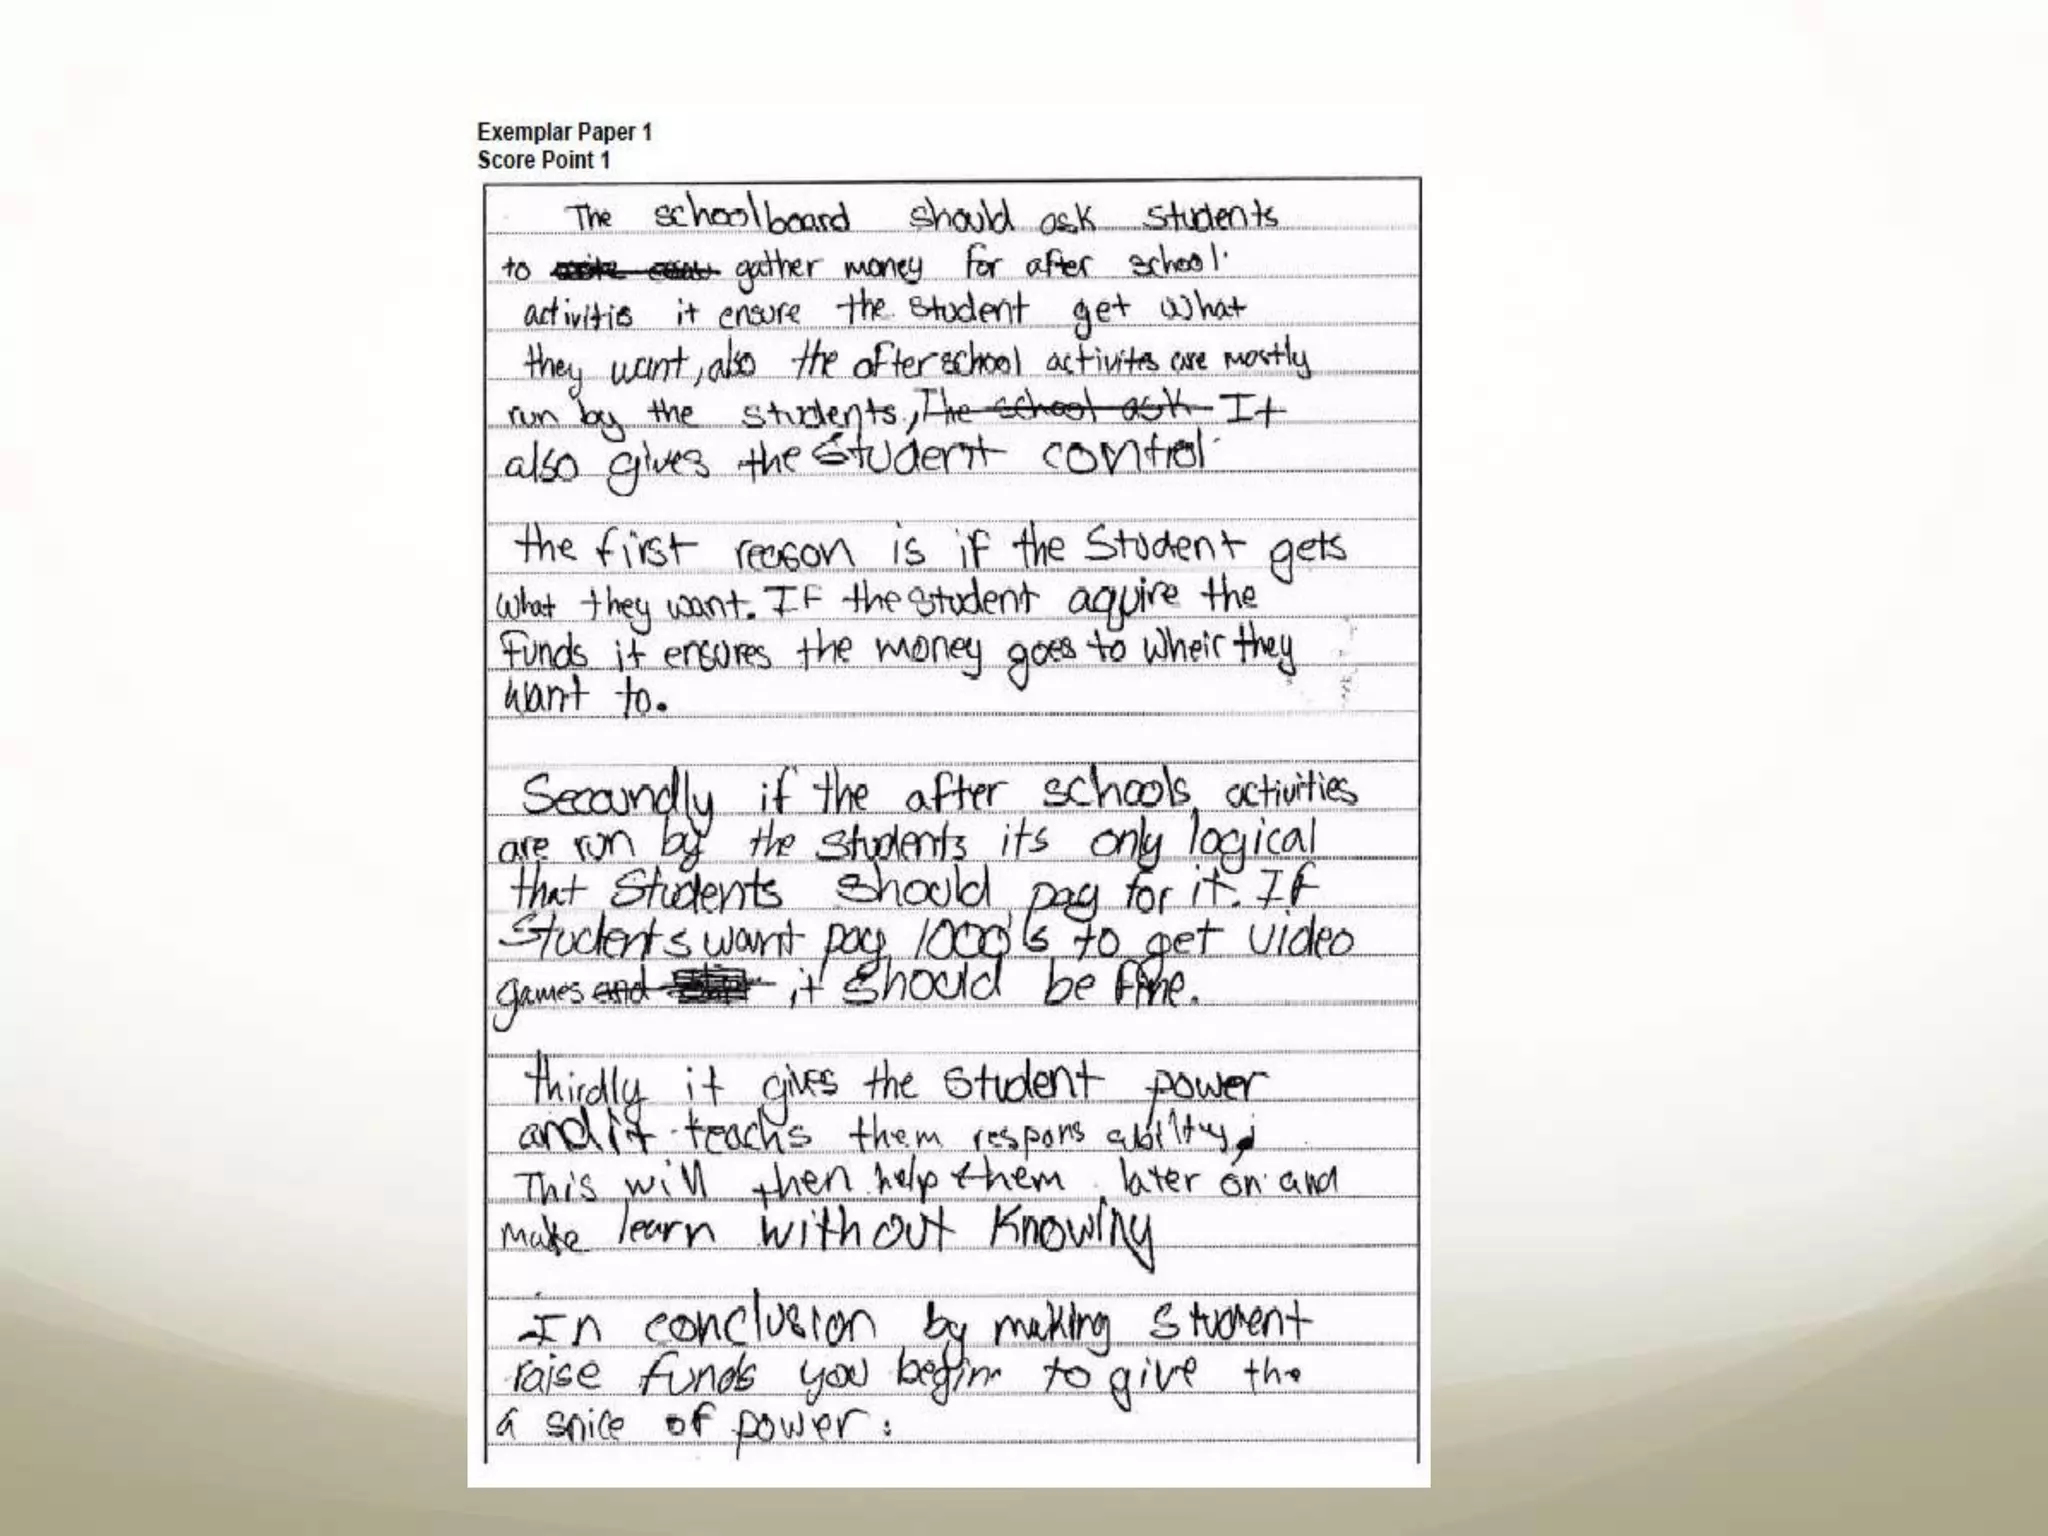 Exemplar Paper 1
Score Point 1
The schoolboard should ask students
to gather money for after school
activities it ensure the student get what
they want, also the afterschool activites are mostly
run by the students, The school ask It
also gives the student control
the first reason is if the Student gets
what they want. If the student aquire the
Funds it ensures the money goes to wheir they
want to.
Secoundly if the after schools activities
are run by the students its only logical
that Students should pay for it. If
Students want pay 1000's to get video
games and it should be fine.
thirdly it gives the student power
and it teachs them respons ability,
This will then help them later on and
make learn without Knowing
In conclusion by making Student
raise funds you begin to give the
a snice of power.